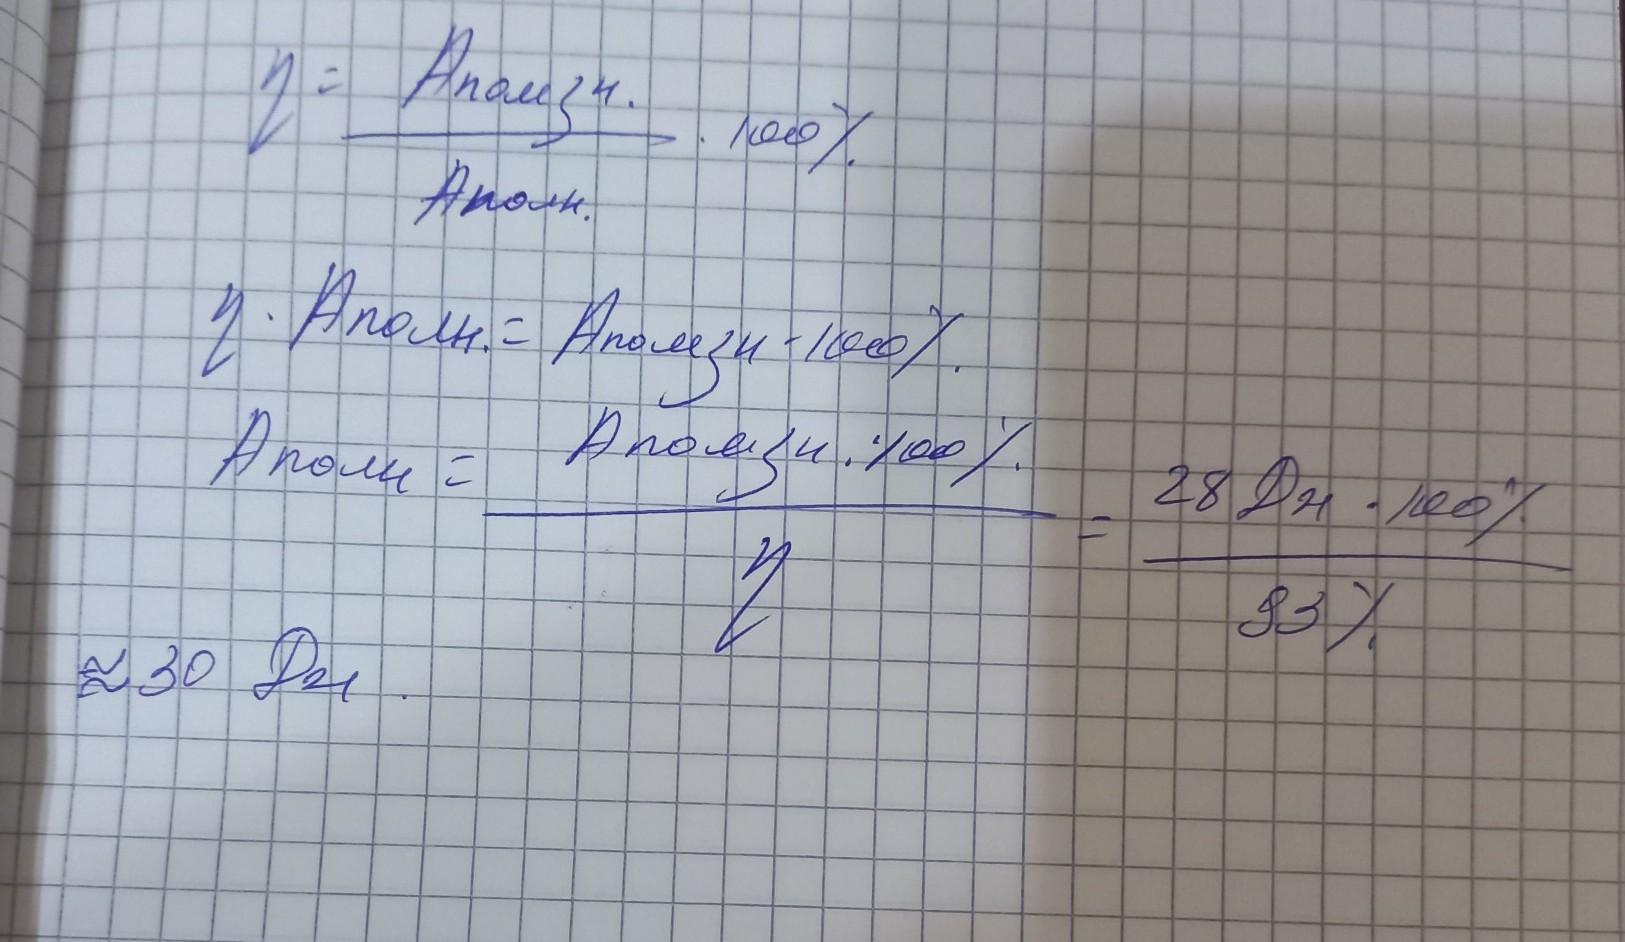 η = Аполезн. / Аполн. · 100%
η · Аполн. = Аполезн · 100%
Аполн = Аполезн · 100% / η = 28 Дж · 100% / 93%
≈ 30 Дж.